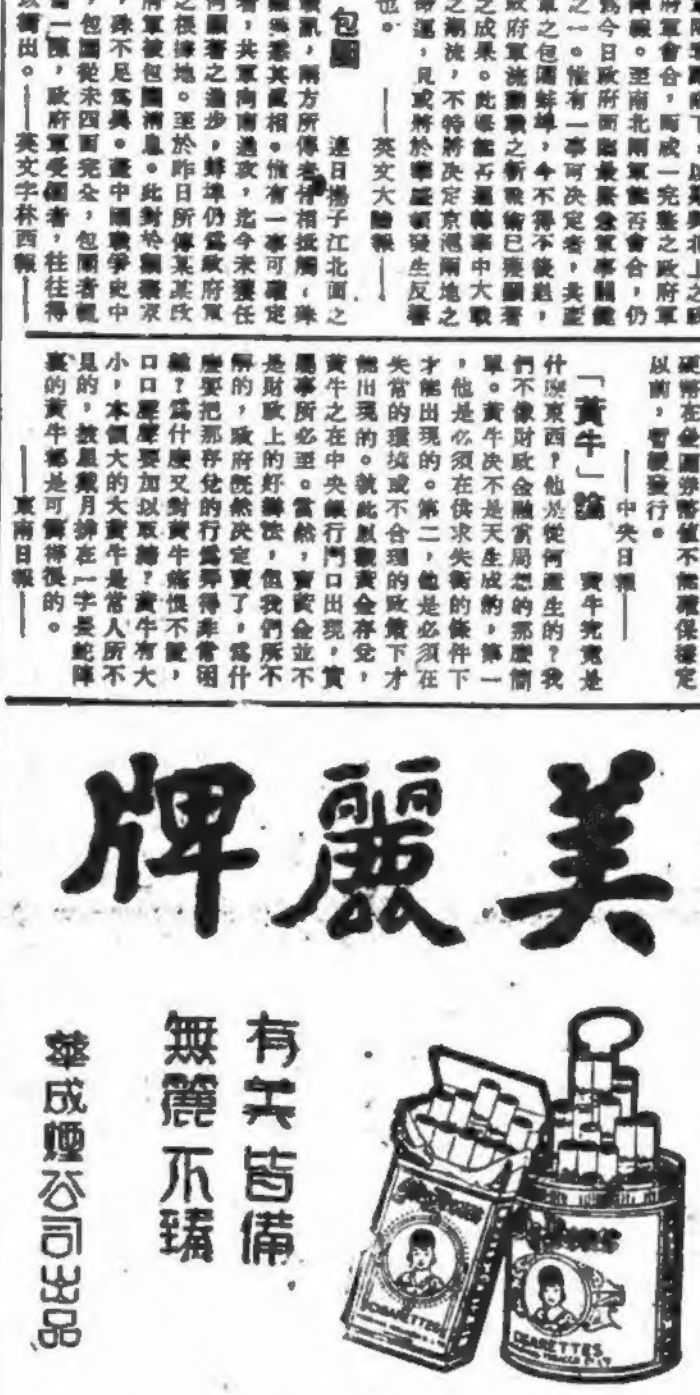 府軍會合,而成一完整之政府軍
陣線。至南北兩軍能否會合,仍
為今日政府面臨最緊急軍事關鍵
之一。惟有一事可決定者,共產
軍之包圍蚌埠,今不得不後退,
政府軍流動戰之新戰術已獲顯著
之成果。此舉能否運轉華中大戰
之潮流,不特將決定京滬兩地之
命運,且或將於華盛頓發生反響
也。——英文大陸報——
包圍 連日揚子江北面之
戰訊,兩方所傳者皆相抵觸,殊
難獲悉其真相。惟有一事可確定
者,共軍向南進攻,迄今未獲任
何顯著之進步,蚌埠仍為政府軍
之根據地。至於昨日所傳某某政
府軍被包圍消息。此對於觀察家
,殊不足為異。蓋中國戰爭史中
,包圍從未四面完全,包圍者輒
一隙,政府軍受圍者,往往得
以衝出。——英文字林西報——
不能確保穩定
以前,暫緩發行。
——中央日報——
「黃牛」論 黃牛究竟是
什麼東西?他是從何產生的?我
們不像財政金融當局想的那麼簡
單。黃牛決不是天生成的,第一
,他是必須在供求失衡的條件下
才能出現的。第二,他是必須在
失常的環境或不合理的政策下才
能出現的。就此以觀黃金存兌,
黃牛之在中央銀行門口出現,實
屬事所必至。當然,賣黃金並不
是財政上的好辦法,但我們所不
解的,政府既然決定賣了,為什
麼要把那存兌的行為弄得非常困
難?為什麼又對黃牛痛恨不置,
口口聲聲要加以取締?黃牛有大
小,本領大的大黃牛是常人所不
見的,披星戴月排在一字長蛇陣
裏的黃牛都是可憐得很的。
——東南日報——
美麗牌
有美皆備
無麗不臻
華成煙公司出品
CIGARETTES
CIGARETTES